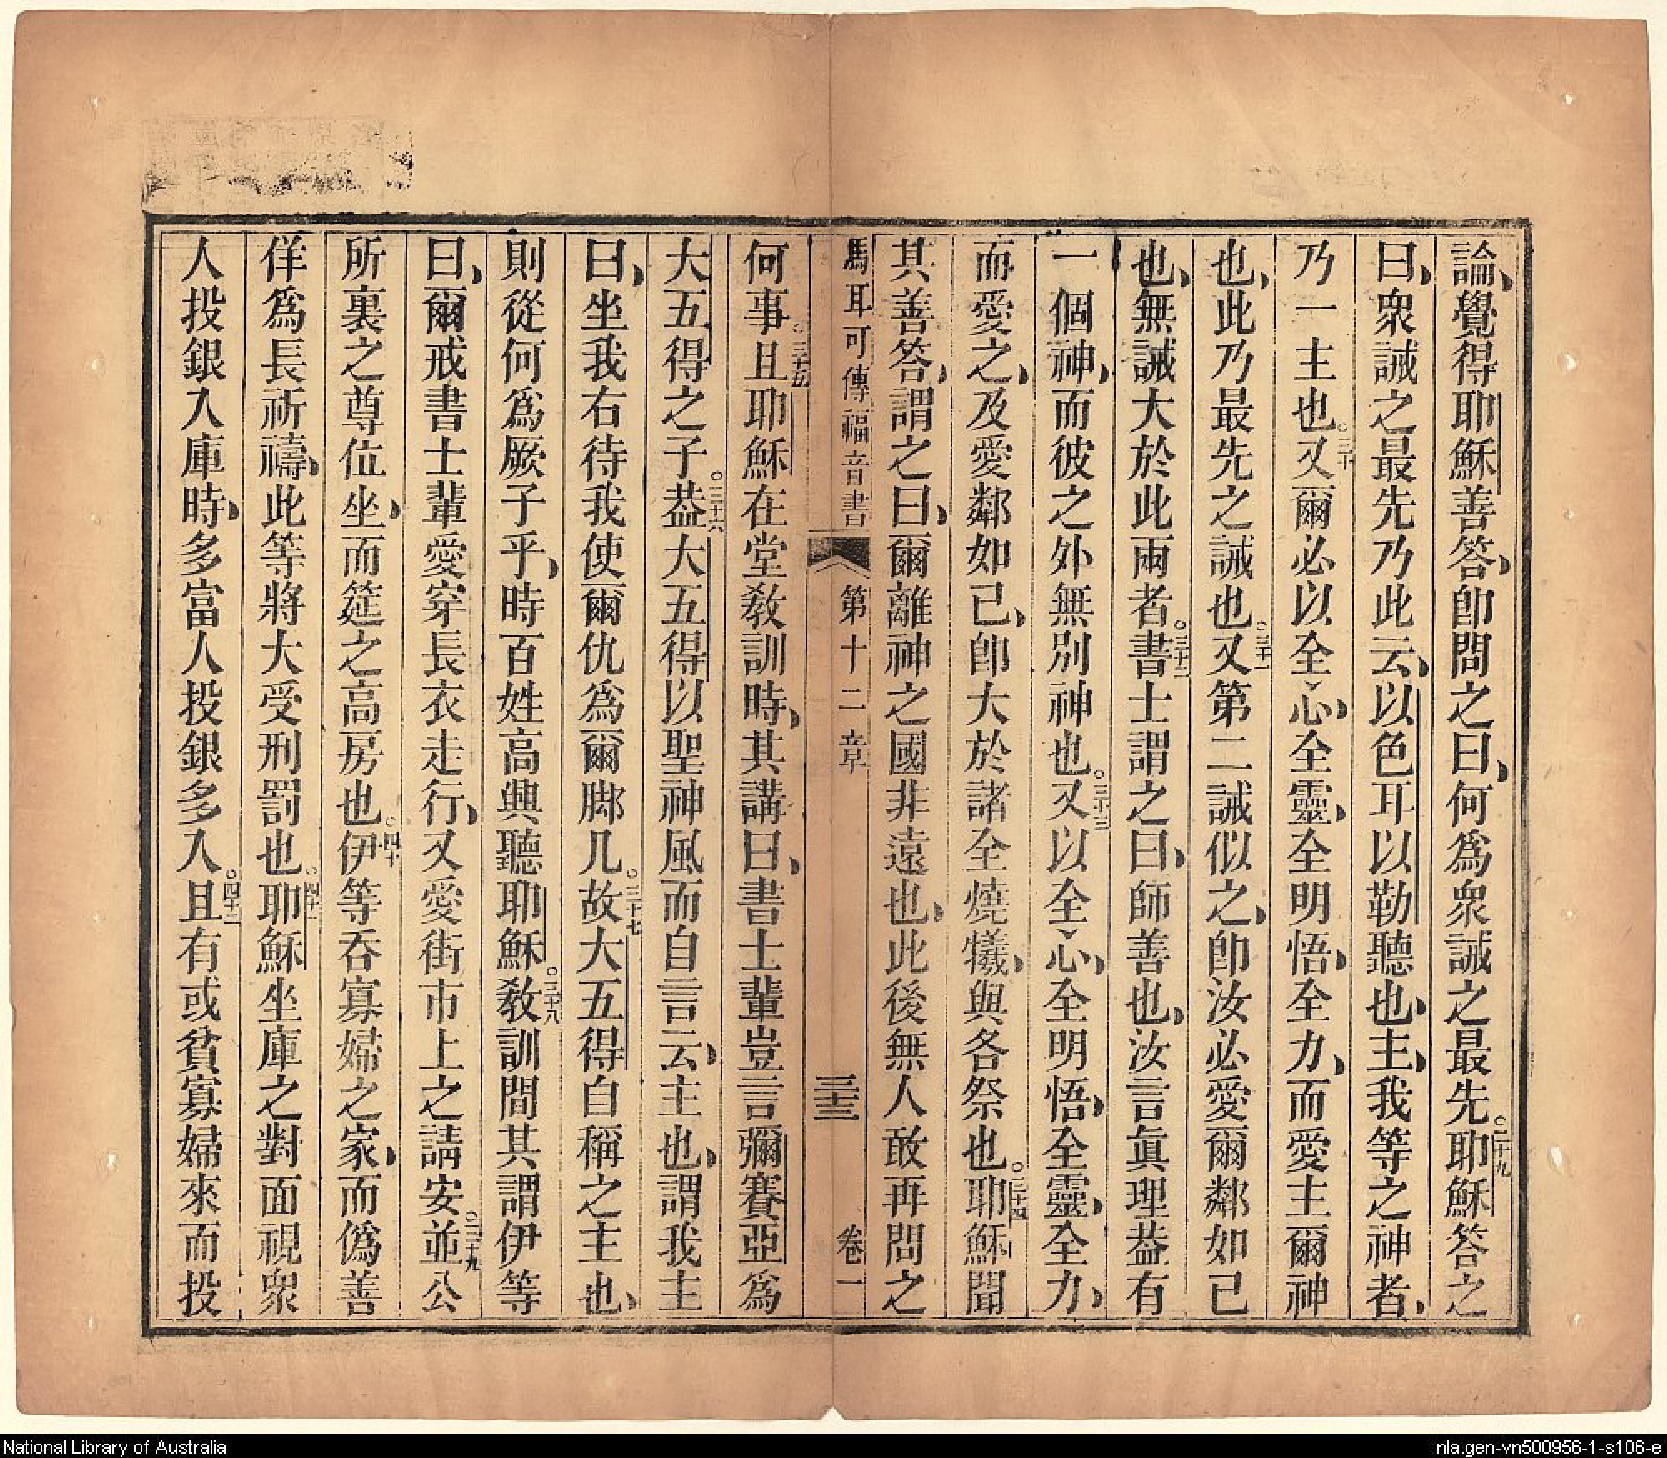 論、覺得耶穌善答、卽問之曰、何爲衆誡之最先。二十九耶穌答之
曰、衆誡之最先乃此云、以色耳以勒聽也、主、我等之神者、
乃一主也。三十又爾必以全心、全靈、全明悟、全力、而愛主爾神
也、此乃最先之誡也。三十一又第二誡似之、卽汝必愛爾鄰如己
也、無誡大於此兩者。三十二書士謂之曰、師善也、汝言眞理葢有
一個神、而彼之外無別神也。三十三又以全心、全明悟、全靈、全力、
而愛之、及愛鄰如己、卽大於諸全燒犧、與各祭也。三十四耶穌聞
其善答、謂之曰、爾離神之國非遠也、此後無人敢再問之
馬耳可傳福音書 第十二章 三十三 卷一
何事。三十五且耶穌在堂敎訓時、其講曰、書士輩豈言彌賽亞爲
大五得之子。三十六葢大五得以聖神風而自言云、主也、謂我主
曰、坐我右待我使爾仇爲爾脚几。三十七故大五得自稱之主也、
則從何爲厥子乎、時百姓高興聽耶穌。三十八敎訓間其謂伊等
曰、爾戒書士輩愛穿長衣走行、又愛街市上之請安。三十九並公
所裏之尊位坐、而筵之高房也。四十伊等吞寡婦之家、而僞善
佯爲長祈禱、此等將大受刑罰也。四十一耶穌坐庫之對面視衆
人投銀入庫時、多富人投銀多入。四十二且有或貧寡婦來而投
National Library of Australia
nla.gen-vn500956-1-s106-e